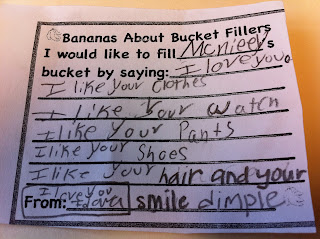 Bananas About Bucket Fillers
I would like to fill Mcnieel's
bucket by saying: I love you
I like your Clothes
I like Your watch
I like Your Pants
I like Your Shoes
I like Your hair and your
I love you
From: a smile dimple